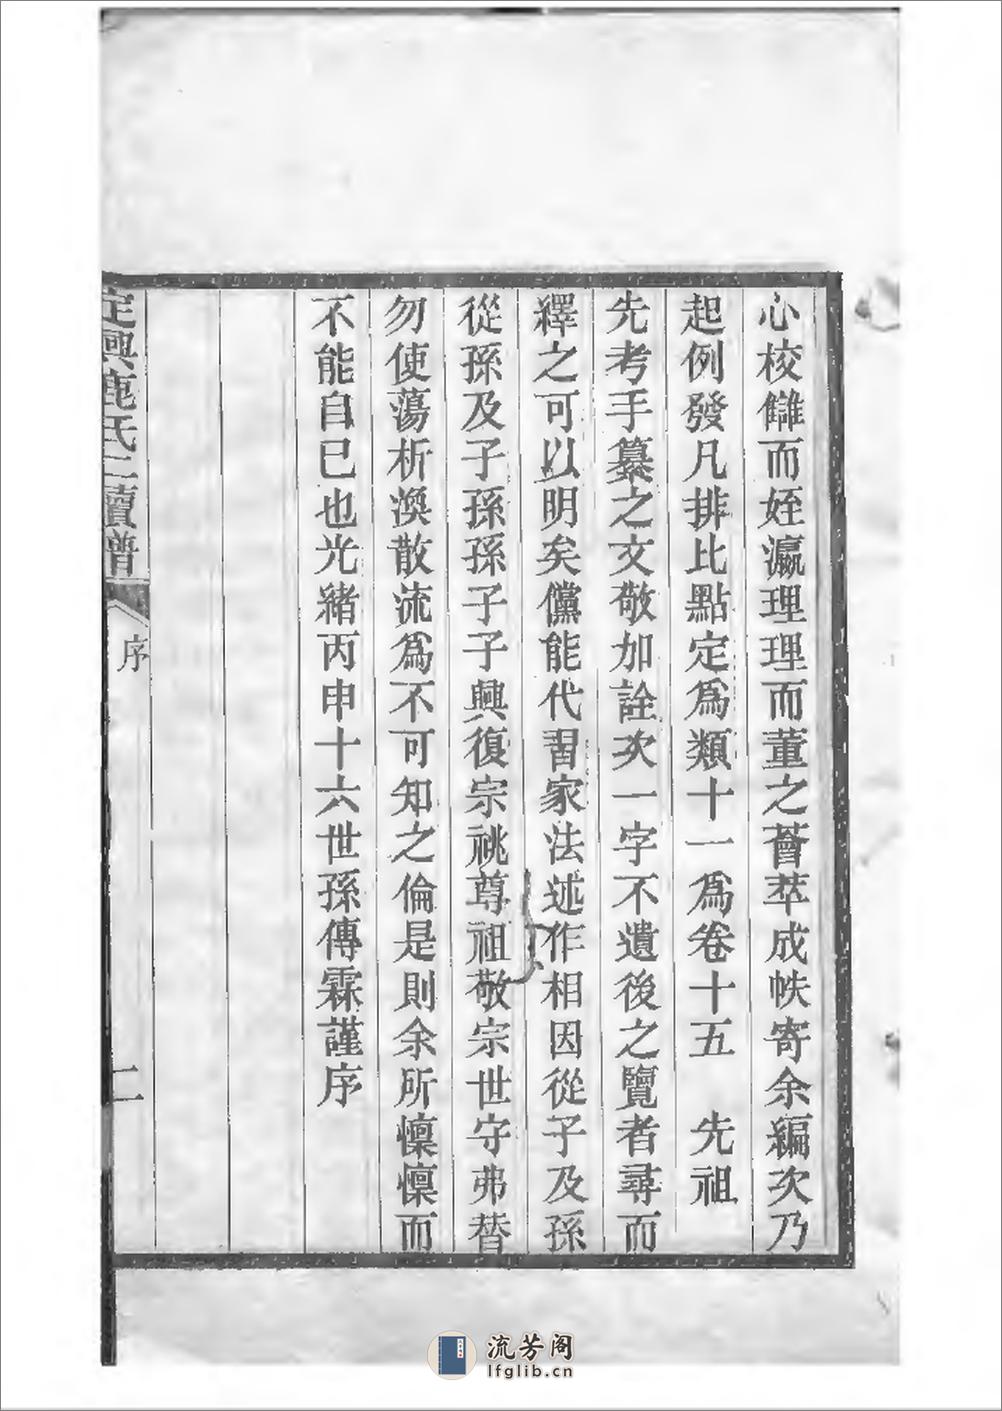 心校讎而姪瀛理理而董之薈萃成帙寄余編次乃
起例發凡排比點定爲類十一爲卷十五　先祖
先考手纂之文敬加詮次一字不遺後之覽者尋而
繹之可以明矣儻能代習家法述作相因從子及孫
從孫及子孫孫子子興復宗祧尊祖敬宗世守弗替
勿使蕩析渙散流爲不可知之倫是則余所懍懍而
不能自已也光緒丙申十六世孫傳霖謹序
定興鹿氏二續譜
序
二
流芳阁
lfglib.cn